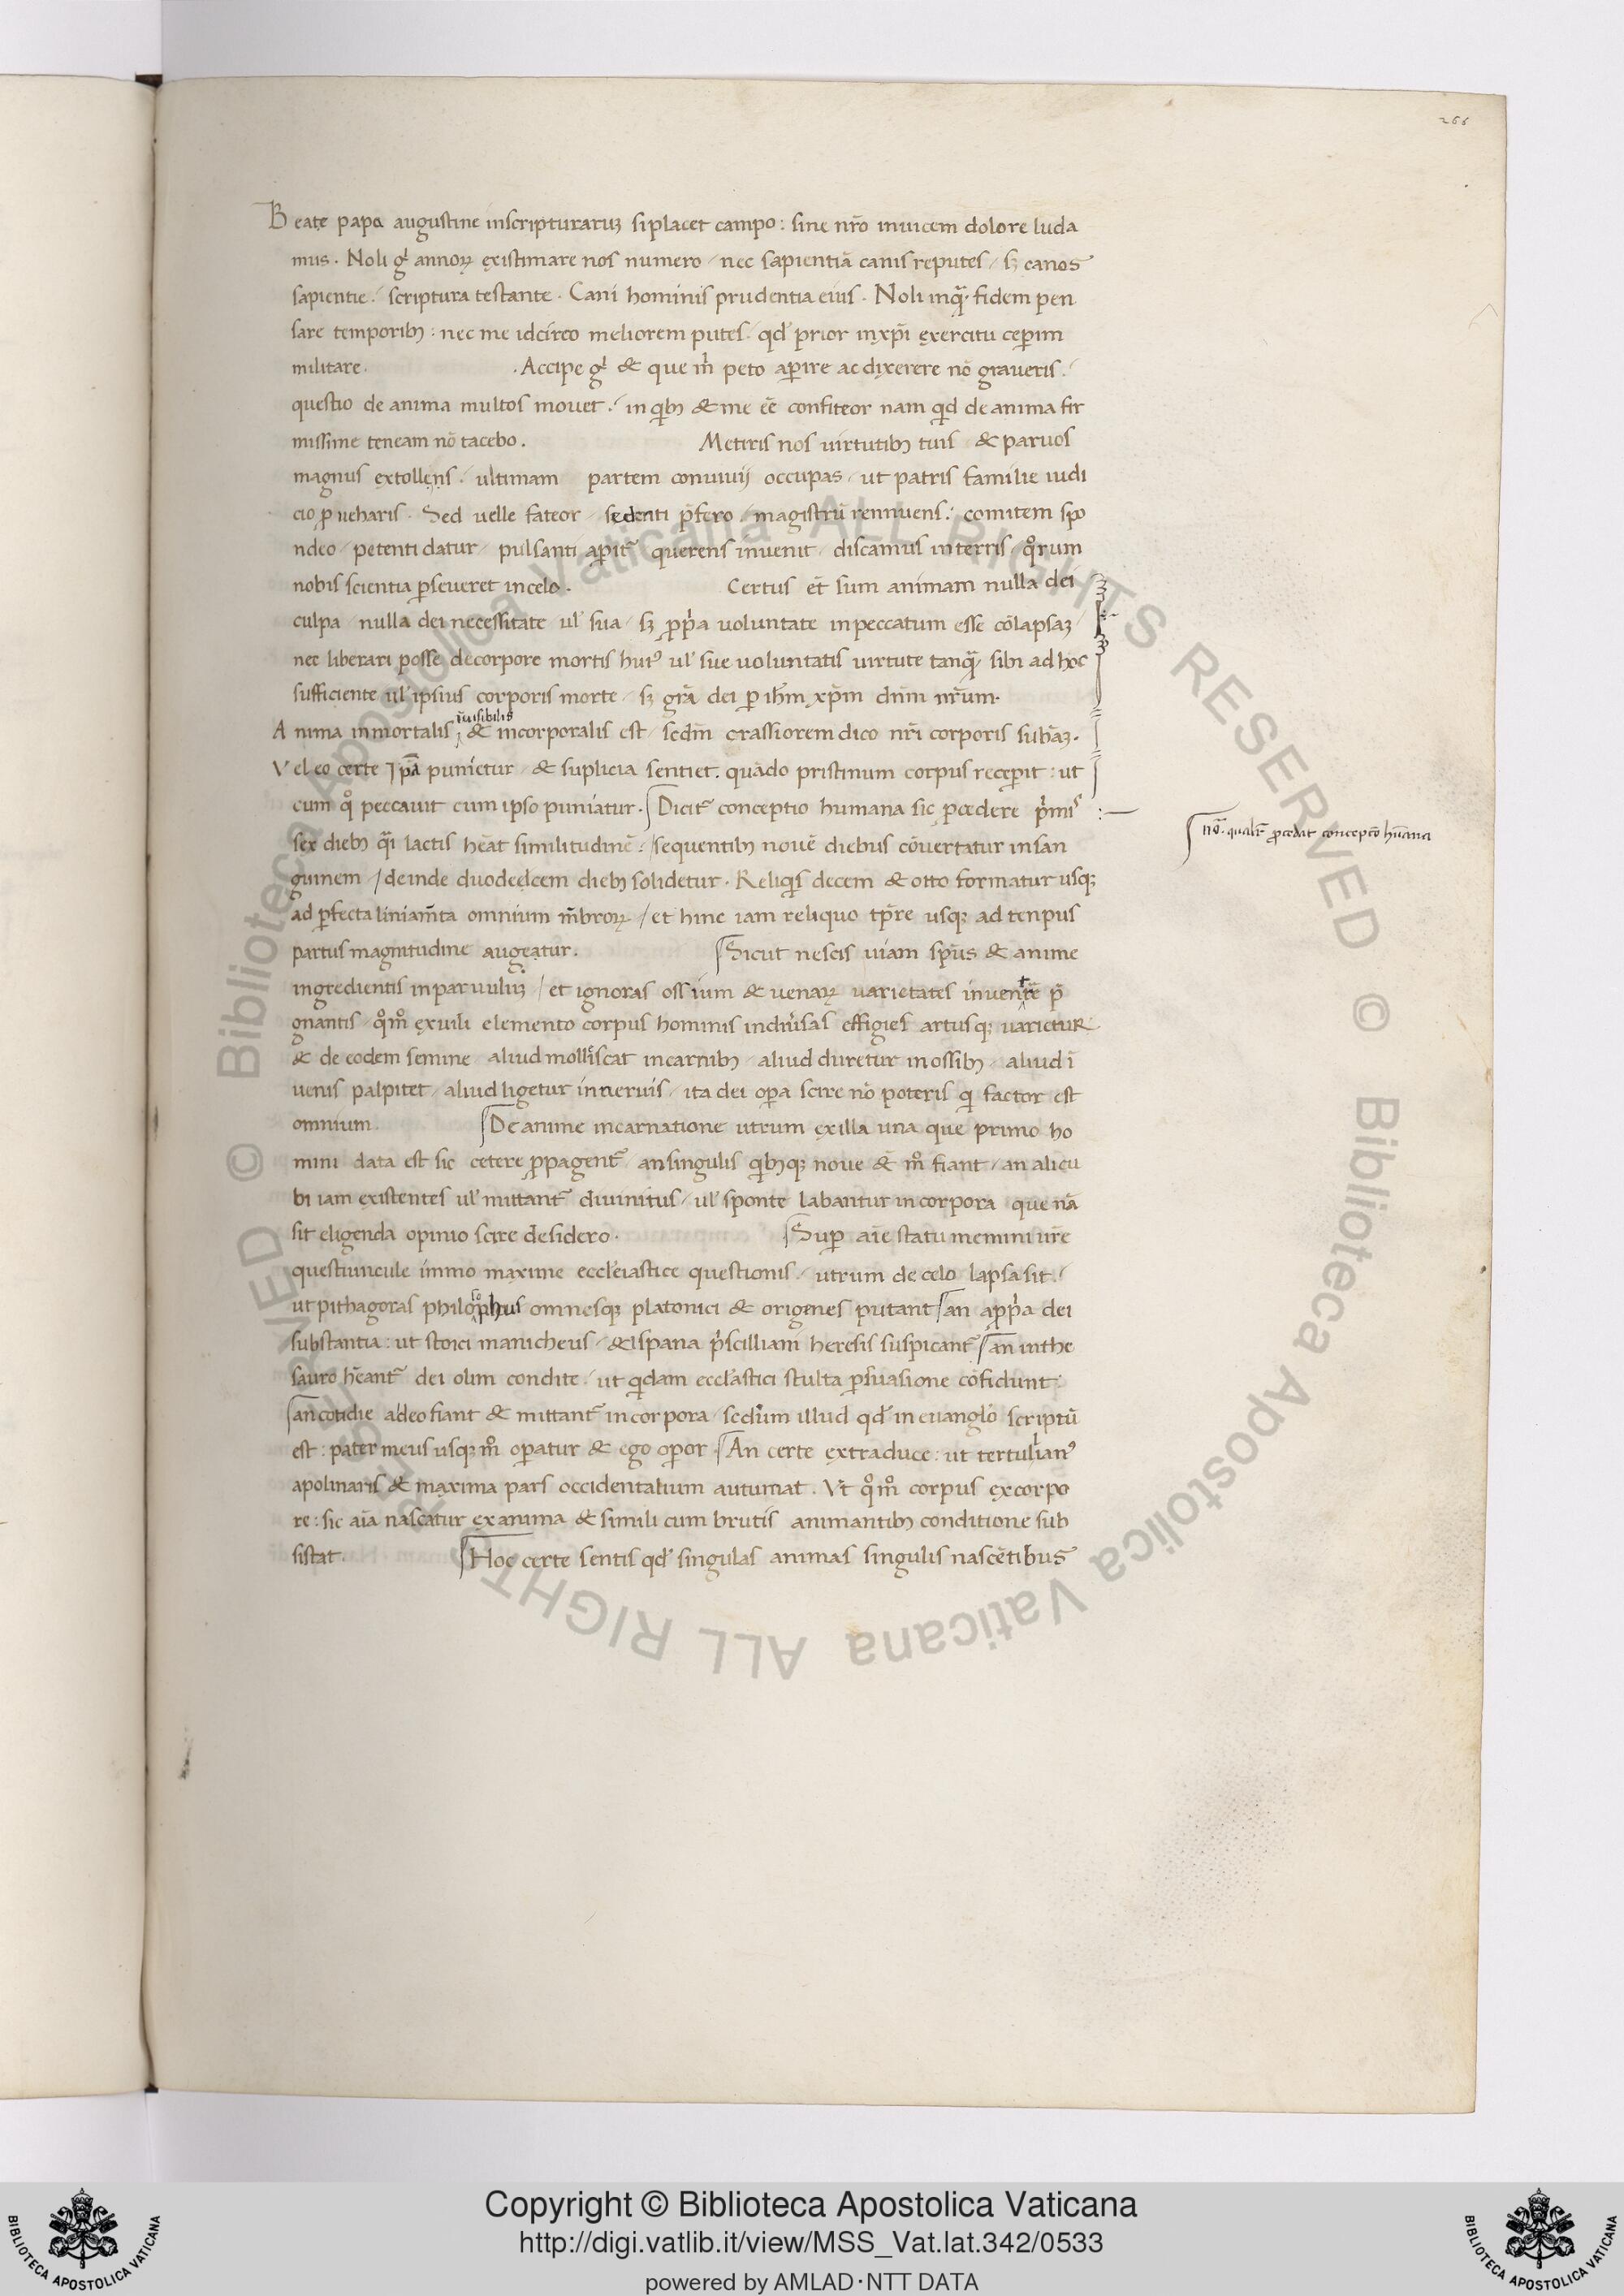 266
Beate papa augustine inscripturaruʒ si placet campo : sine nr̄o inuicem dolore luda
mus . Noli gͥ annoꝝ existimare nos numero / nec sapientiā canis reputes / sʒ canos
sapientie / scriptura testante . Cani hominis prudentia eius . Noli inqͣ fidem pen
sare temporibꝰ : nec me idcirco meliorem putes / qd' prior inxp̄i exercitu ceperim
militare . . Accipe gͥ & que m̄ peto aꝑire ac dixerere nō graueris /
questio de anima multos mouet / in qͥbꝰ & me eē confiteor nam qͥd de anima fir
missime teneam nō tacebo . Metiris nos uirtutibꝰ tuis & paruos
magnus extollens / ultimam partem conuiuij occupas / ut patris familie iudi
cio ꝓueharis . Sed uelle fateor / sedenti p̄fero / magistrū rennuens / comitem spo
ndeo / petenti datur / pulsanti aꝑit᷑ querens inuenit / discamus interris / qͦrum
nobis scientia ꝑseueret incelo . Certus et̄ sum animam nulla dei
culpa / nulla dei necessitate ul' sua / sʒ ꝓpͥa uoluntate inpeccatum esse cōlapsaʒ /
nec liberari posse decorpore mortis huiꝰ ul' sue uoluntatis uirtute tanqͣ sibi ad hoc
sufficiente ul' ipsius corporis morte / sʒ grā dei ꝑ ih̄m xp̄m dn̄m nr̄um .
Anima inmortalis īuisibilis & incorporalis est / secdm̄ crassiorem dico nr̄i corporis subāʒ .
Vel eo certe ip̄a punietur & suplicia sentiet . quādo pristinum corpus receꝑit : ut
cum qͦ peccauit cum ipso puniatur . Dicit᷑ conceptio humana sic ꝓcedere pͥmis
sex diebꝰ qͣi lactis heāt similitudinē / sequentibꝰ nouē diebus cōuertatur insan
guinem / deinde duodecem diebꝰ solidetur . Reliqͥs decem & otto formatur usqʒ
ad ꝑfecta liniam̄ta omnium m̄broꝝ / et hinc iam reliquo tp̄re usqʒ ad tenpus
partus magnitudine augeatur . Sicut nescis uiam sp̄us & anime
ingredientis inparuulūʒ / et ignoras ossium & uenaꝝ uarietates inuentrē p̄
gnantis / qͦmͦ exuili elemento corpus hominis indiuͥsas effigies artusqʒ uarietur
& de eodem semine / aliud molliscat incarnibꝰ / aliud duretur inossibꝰ / aliud ī
uenis palpitet / aliud ligetur inneruis / ita dei oꝑa scire nō poteris qͥ factor est
omnium . De anime incarnatione utrum exilla una que primo ho
mini data est sic cetere ꝓpagent᷑ / ansingulis qͥbꝰqʒ noue & mͦ fiant / an alicu
bi iam existentes ul' mittant᷑ diuinitus / ul' sponte labantur incorpora que nā
sit eligenda opinio scire desidero . Suꝑ aīe statu memini ur̄e
questiuncule immo maxime eccl'eiastice questionis / utrum de celo lapsa sit /
ut pithagoras philosophus omnesqʒ platonici & origenes putant an aꝓpͥa dei
substantia : ut stoici manicheus / & ispana pͥscilliani heresis suspicant᷑ an inthe
sauro hēant᷑ dei olim condite / ut qͥdam eccl'astici stulta ꝑsuasione cōfidunt .
an cotidie adeo fiant & mittant᷑ incorpora / secdum illud qd' in euanglō scriptū
est : pater meus usqʒ mͦ oꝑatur & ego oꝑor . An certe extraduce : ut tertulianꝰ
apolinaris & maxima pars occidentalium autumat . Vt qͦmͦ corpus excorpo
re : sic aīa nascatur exanima & simili cum brutis animantibꝰ conditione sub
sistat . Hoc certe sentis qd' singulas animas singulis nascētibus
nō . qualr̄ ꝓcedat conceptō hūana
Copyright © Biblioteca Apostolica Vaticana
http://digi.vatlib.it/view/MSS_Vat.lat.342/0533
powered by AMLAD·NTT DATA
BIBLIOTECA APOSTOLICA VATICANA
BIBLIOTECA APOSTOLICA VATICANA
© Biblioteca Apostolica Vaticana ALL RIGHTS RESERVED © Biblioteca Apostolica Vaticana ALL RIGHTS RESERVED